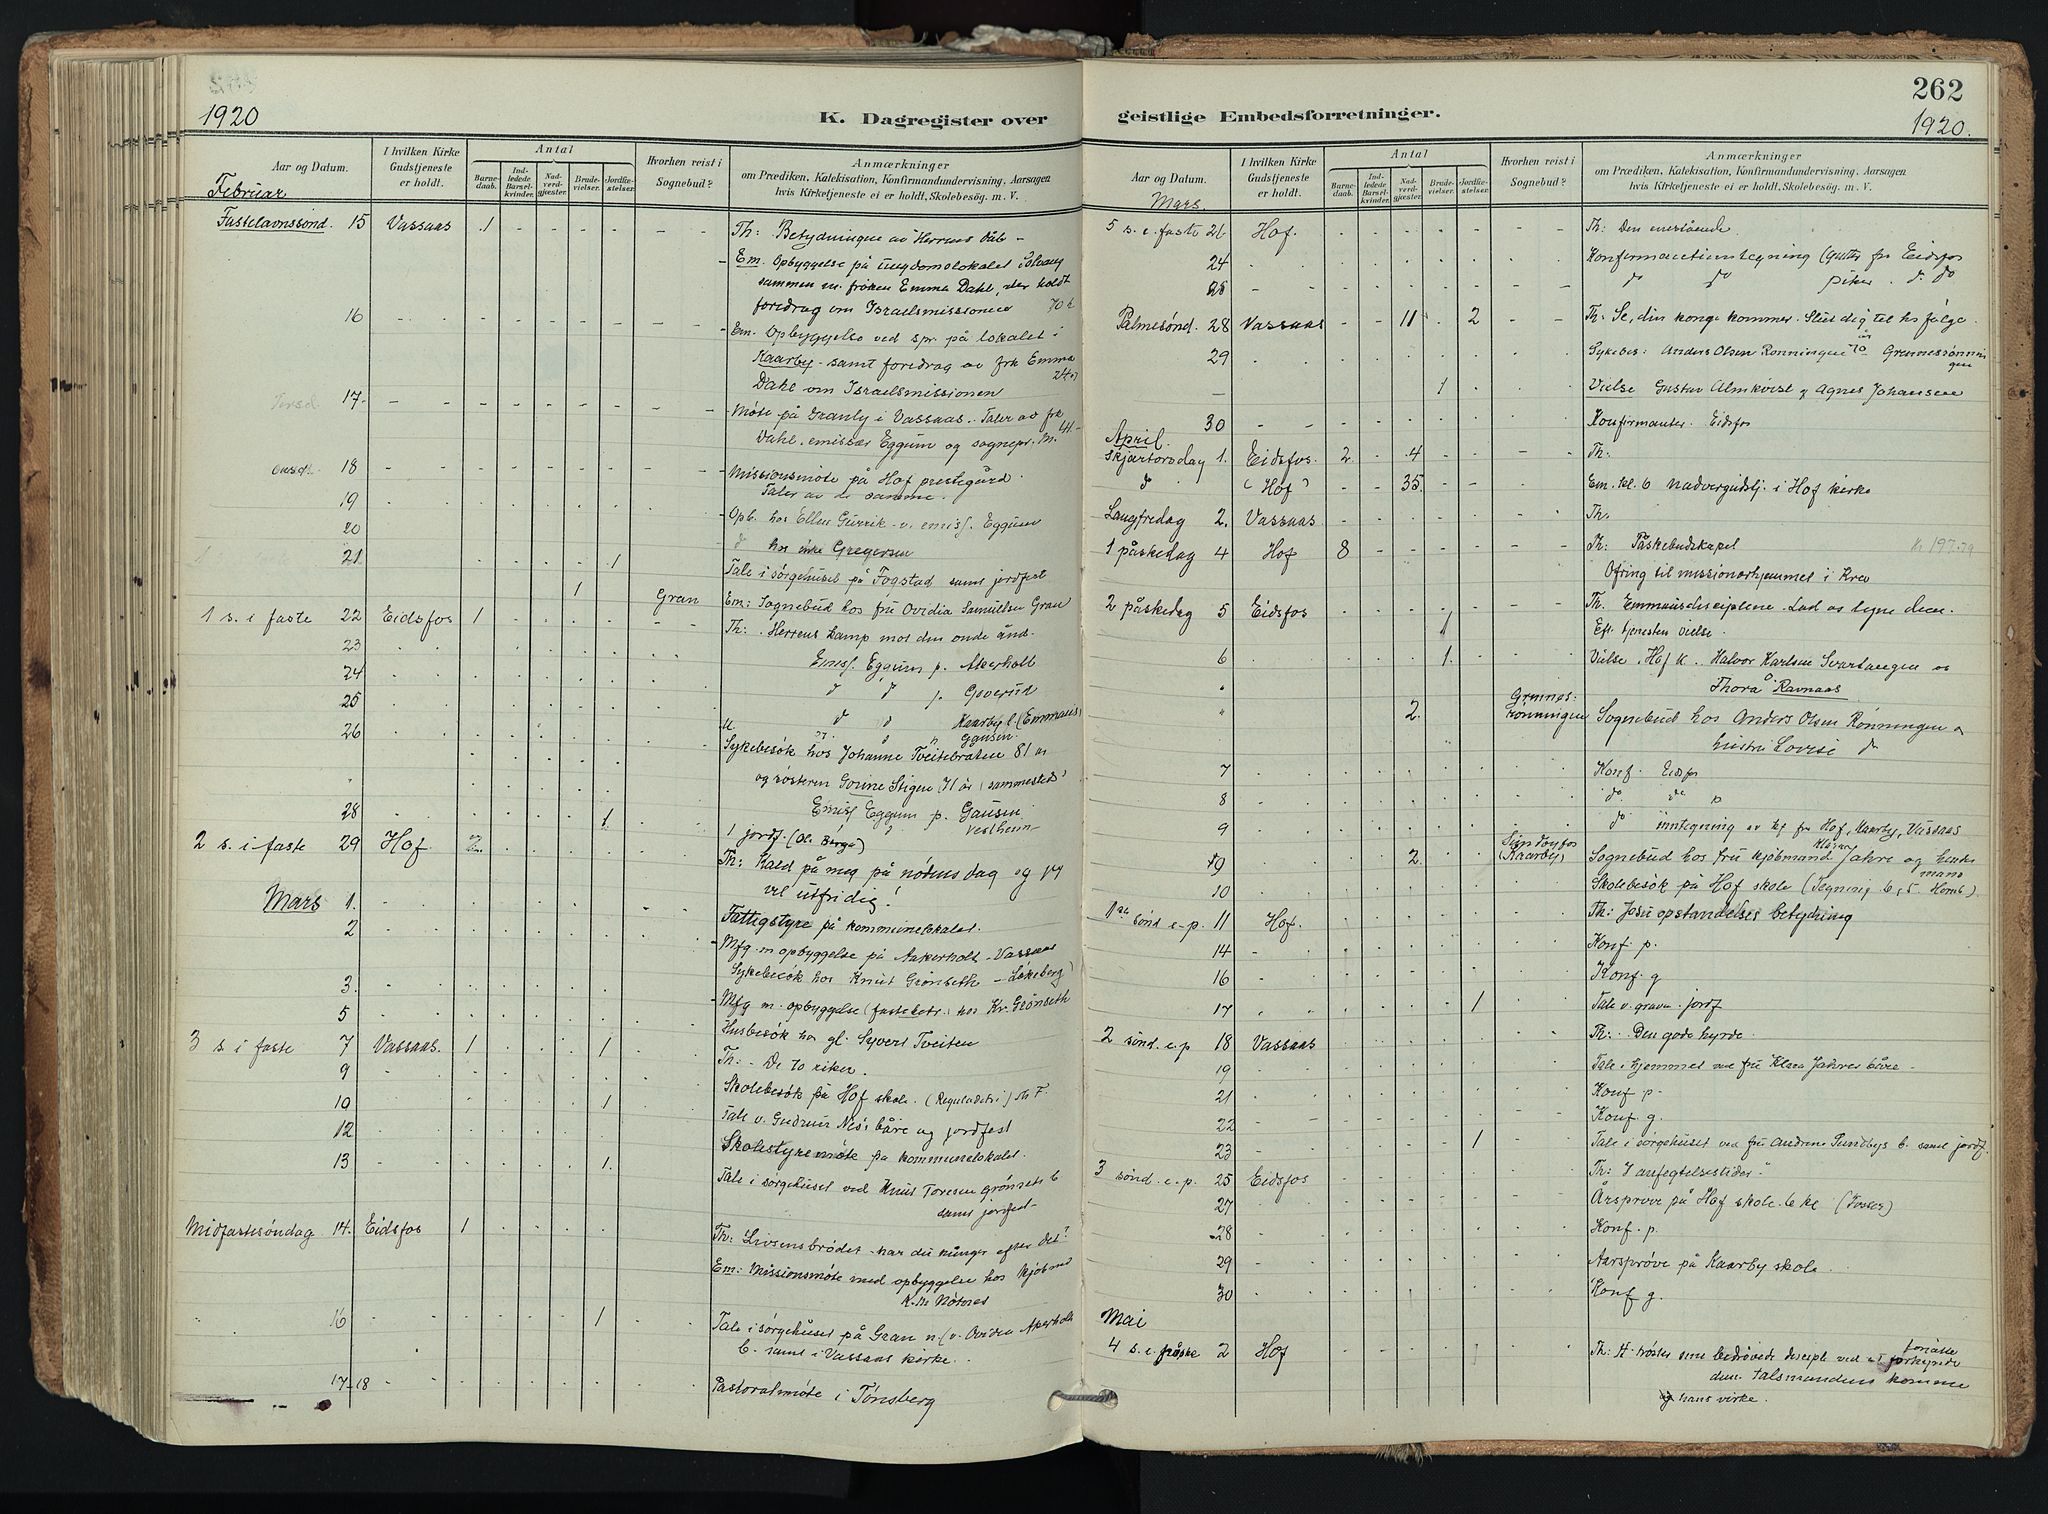 1920
K. Dagregister over
Aar og Datum.
I hvilken Kirke Gudstjeneste er holdt.
Antal
Barnedaab.
Indledede Barselkvinder.
Nadverdgjæster.
Brudevielser.
Jordfæstelser.
Hvorhen reist i Sognebud?
Anmærkninger
om Prædiken, Katekisation, Konfirmandundervisning, Aarsagen
hvis Kirketjeneste ei er holdt, Skolebesøg m. V.
Februar
Fastelavnssønd. 15 Vassaas 1 Th: Betydningen av Herrens Dåb -
Em. Opbyggelse på ungdomslokalet Solvang
sammen m. frøken Emma Dahl, der holdt
foredrag om Israelsmissionen 70 k
16 Em. Opbyggelse ved spr. på lokalet i
Kaarby - samt foredrag av frk Emma
Dahl om Israelsmissionen
Tirsd. 17 Møte på Granly i Vassaas. Taler av frk
Dahl, emissær Eggum og sognepr.
Onsd. 18 Missionsmøte på Hof prestegård.
19 Taler av de samme.
20 Opb. hos Ellen Gurrik v. emiss. Eggum
d hos enke Gregersen
21 1 Tale i sørgehuset på Fogstad samt jordfest
1 Gran Em: Sognebud hos fru Ovidia Samuelsen Gran
1 s. i faste 22 Eidsfos 1 Th: Herrens kamp mot den onde ånd.
23 Emiss. Eggum p. Akerholt
24 d d p. Goverud
25 d d Kaarby l. (Emmaus)
26
Sykebesøk hos Johanne Tveitebraten 81 år
og søsteren Gorine Stigen (71 år) sammesteds
28 1 Emiss Eggum p. Gausen
Vestheim
1 jordf.
2 s. i faste 29 Hof 2 Th: Kald på meg på nødens dag og jeg
vil utfri dig!
Mars 1. Fattigstyre på kommunelokalet.
2 Mfg m opbyggelse på Aakerholt - Vassaas
Sykebesøk hos Knut Grønseth - Løkeberg
3. Mfg m. opbyggelse (fastebetr.) hos Kr. Grønseth
5 Husbesøk hos gl. Syvert Tveiten
3 s. i faste 7 Vassaas. 1 1 Th: - De to riker.
9 Skolebesøk på Hof skole. (Reguladetri) M F.
10 1 Tale v. Gudrun Nes's båre og jordfest
12 Skolestyremøte på kommunelokalet.
13 1. Tale i sørgehuset ved Knut Toresen Grønsets b
samt jordfest
Midfastesøndag 14. Eidsfos 1 Th: Livsens brødet - har du hunger efter det?
Em: Missionsmøte med opbyggelse hos kjøbmd
16 1 Tale i sørgehuset på Gran n. (v. Ovidia Akerholt
b. samt i Vassaas kirke.
17-18 Pastoralmøte i Tønsberg
262
1920.
geistlige Embedsforretninger.
Aar og Datum.
I hvilken Kirke Gudstjeneste er holdt.
Antal
Barnedaab.
Indledede Barselkvinder.
Nadverdgjæster.
Brudevielser.
Jordfæstelser.
Hvorhen reist i Sognebud?
Anmærkninger
om Prædiken, Katekisation, Konfirmandundervisning, Aarsagen
hvis Kirketjeneste ei er holdt, Skolebesøg m. V.
Mars.
5 s. i. faste 21 Hof. Th: Den enestående.
24 Konfirmantinntegning (Gutter fra Eidsfos
25 d do piker. d. do
Palmesønd. 28 Vassaas 11 2 Th: Se, din konge kommer. Slut dig til hs følge.
29 Sykebes: Anders Olsen Rønningen 70 år Grennesrønningen
1 Vielse Gustav Almkvist & Agnes Johansen
30 Konfirmanter. Eidsfos
April.
Skjærtorsdag 1. Eidsfos. 2 4 Th:
d (Hof) 35. Em. kl. 6 Nadvergudstj. i Hof kirke
Langfredag 2. Vassaas Th.
1 påskedag 4 Hof 8 Th: Påskebudskapet Kr 197.79
Ofring til missionærhjemmet i
2 påskedag 5 Eidsfos Th. Emmausdisciplene.
1 Eft. tjenesten vielse.
6 1. Vielse. Hof k. Halvor Karlsen Svartangen og
Thora Ravnaas
" 2. Grennesrønningen Sognebud hos Anders Olsen Rønningen o
hustru Lovise d
7 Konf. Eidsfos
8 do. do p
9 do inntegning av tej fra Hof, Kaarby, Vassaas
9 2. Sundbyfos (Kaarby) Sognebud hos fru kjøbmand Klara Jahre og hendes mand
10 Skolebesøk på Hof skole
1ste sønd e. p. 11 Hof. Th: Jesu opstandelses betydning
14 Konf. p.
16 Konf. g
17 1 Tale v. graven. jordf
2 sønd. e. p 18 Vassaas Th: Den gode hyrde.
19 Tale i hjemmet ved fru Klara Jahres båre.
21 Konf p.
22 Konf. g.
23 1 Tale i sørgehuset ved fru Andrine Sundbys b. samt jordf.
3 sønd. e. p. 25 Eidsfos Th: I anfegtelsestider"
27 Årsprøve på Hof skole. 6 kl
28 Konf. p.
29 Aarsprøve på Kaarby skole.
30 Konf g.
Mai
4 s. e. påske 2 Hof Th: trøster sine bedrøvede disciple ved at forkynde
dem Talsmandens komme
og hans virke.